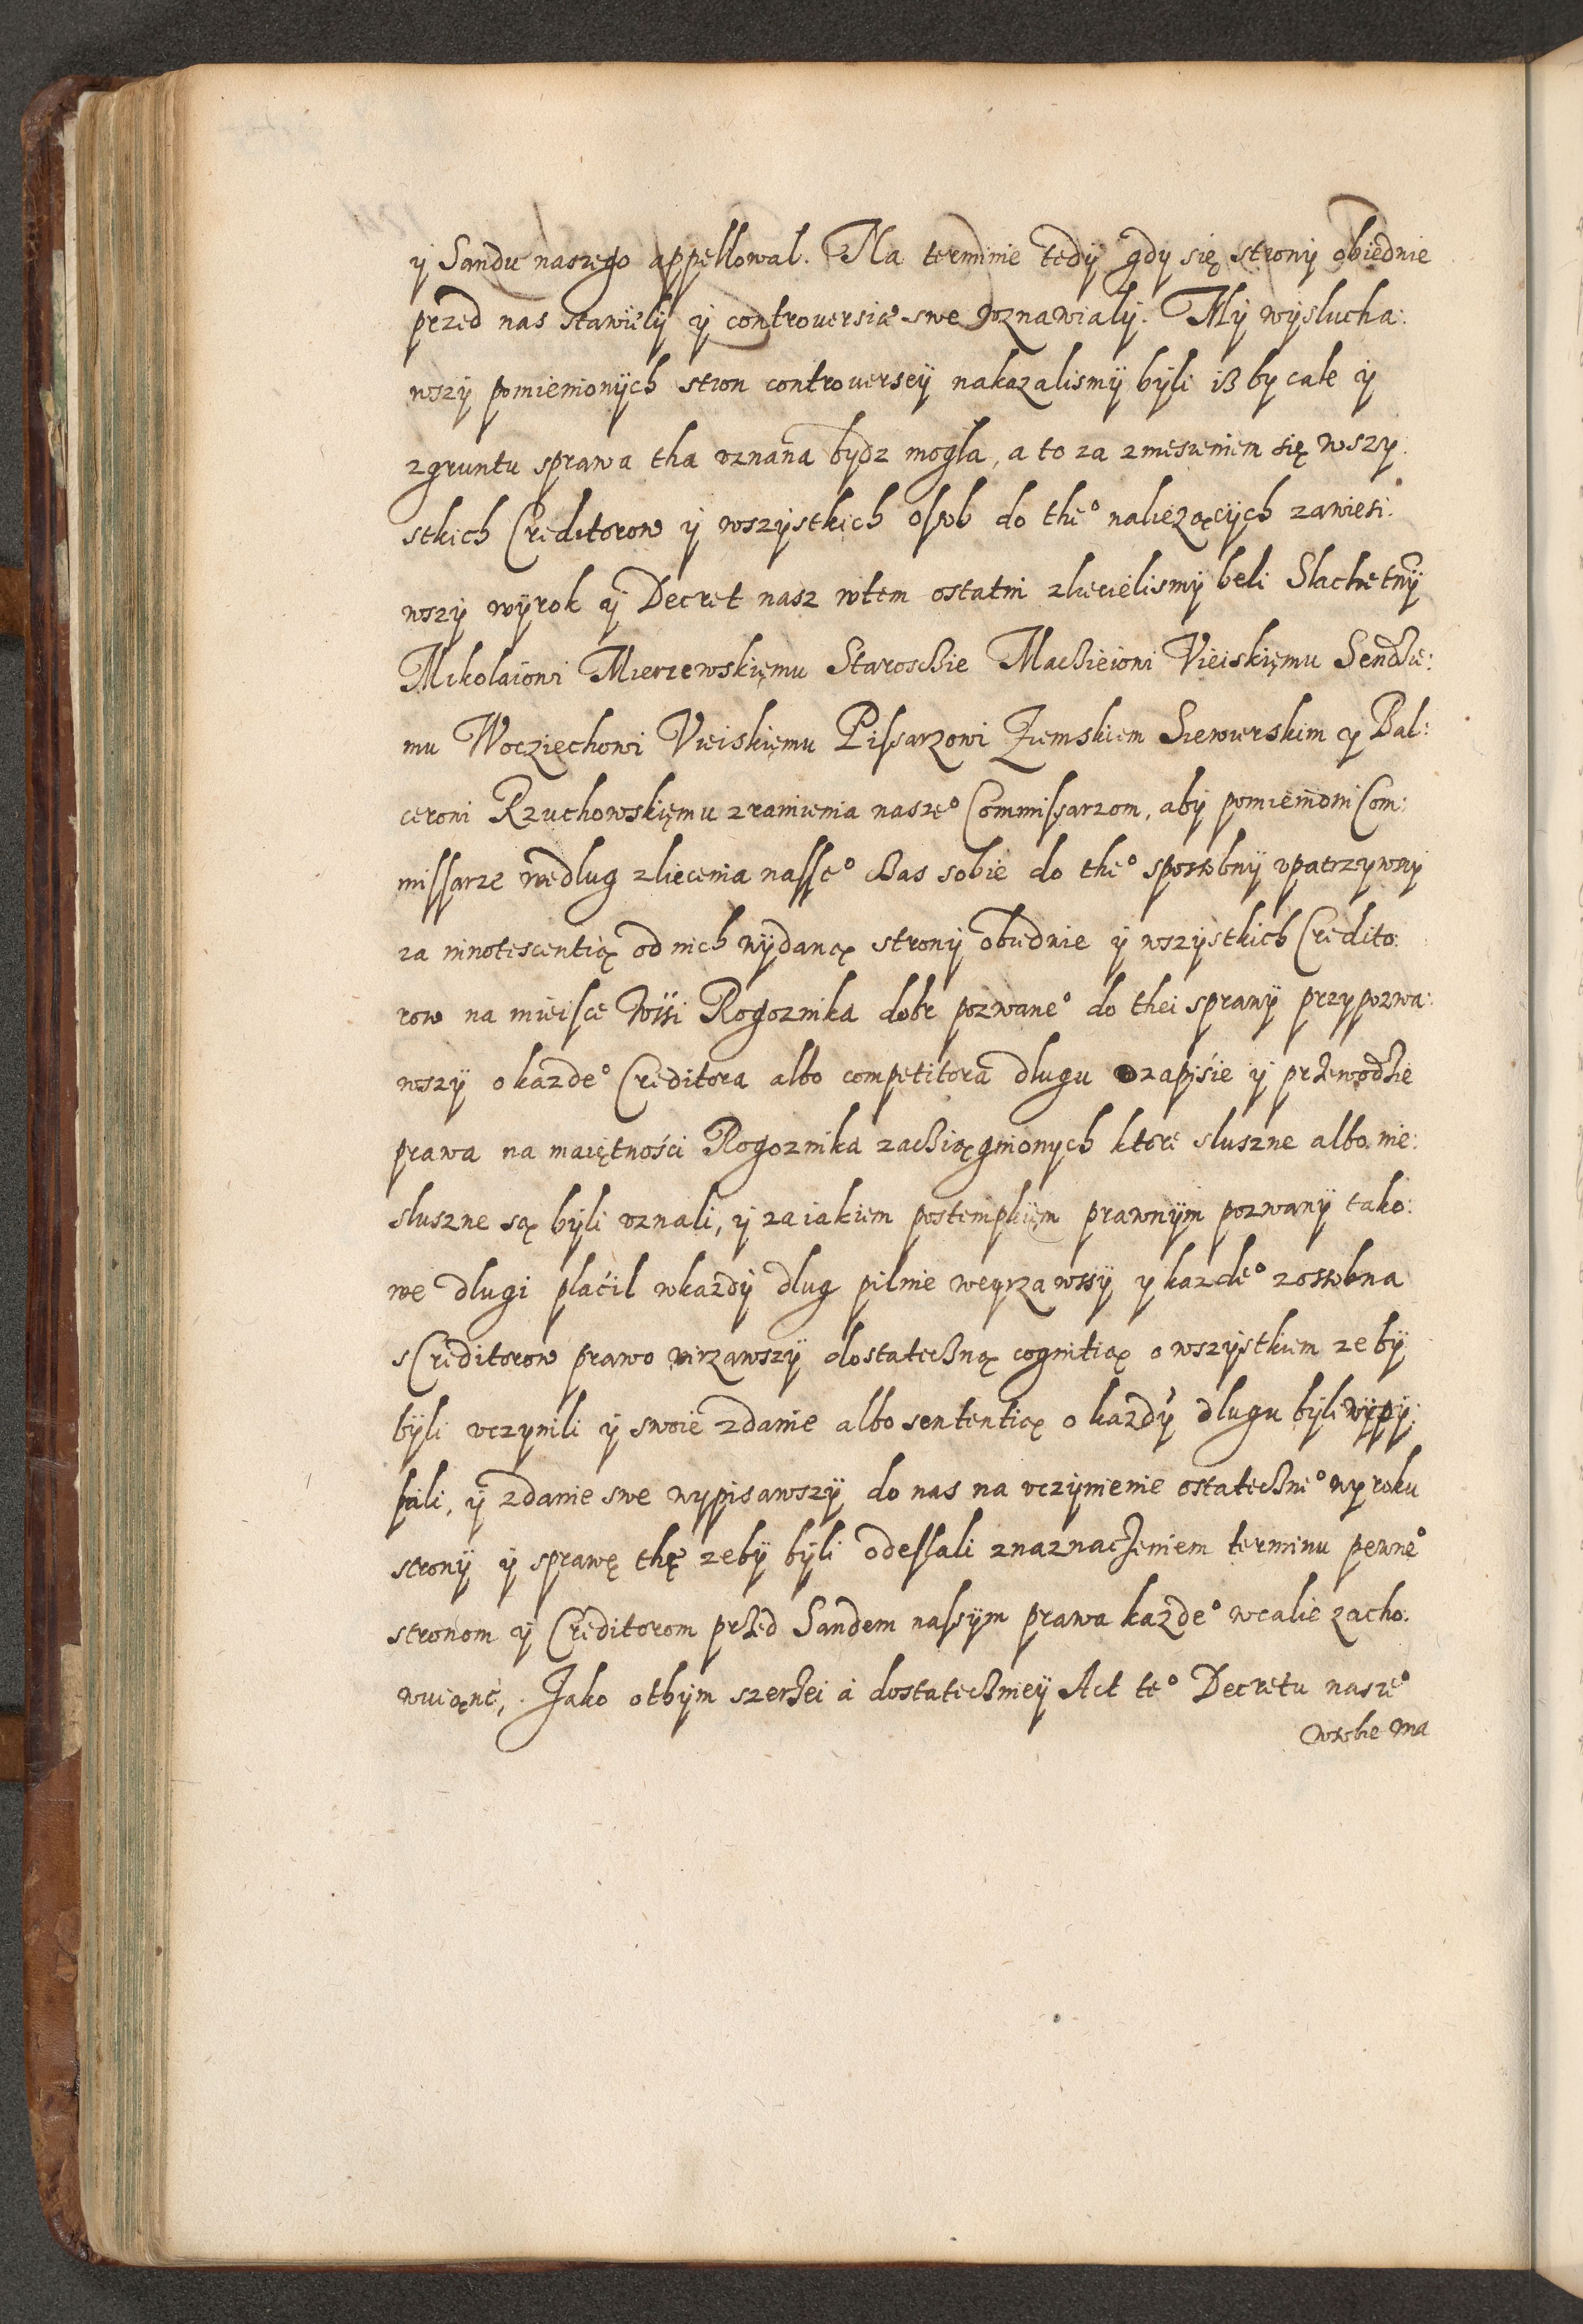 ÿ Sandu naszego appellowal. Na terminie tedÿ gdy się stronÿ obiednie
przed nas stawielÿ ÿ controuersiæ swe woznawialÿ. Mÿ wÿslucha:
wszÿ pomienionÿch stron controuerseÿ nakazalismÿ bÿli iß by cale ÿ
z gruntu sprawa tha vznana bydz mogla, a to za zniesieniem się wszy:
stkich Creditorow ÿ wszÿstkich osob do the° należącÿch zawiesi:
wszÿ wÿrok ÿ Decret nasz wtem ostatni zliecielismÿ beli Slachetnÿ
Mikolaiowi Mierzewskięmu Staroscßie Macßieiowi Vieiskięmu Sendżie:
mu Wocziechowi Vieiskięmu Pissarzowi Ziemskiem Siewierskim ÿ Bal:
cerowi Rzuchowskięmu z ramienia nasze° Commissarzom, abÿ pomienioni Com:
missarze według zliecenia nasse° cßas sobie do the° sposobnÿ vpatrzywszÿ
za innotescentią od nich wÿdaną stronÿ obiednie ÿ wszÿstkich Credito:
row na mieisce Wsi Rogoznika dobr pozwane° do thei sprawÿ przypozwa:
wszÿ o każde° Creditora albo competitora dlugu o zapisie ÿ przewodzie
prawa na maiętności Rogoznika zacßiągnionych ktore sluszne albo nie:
sluszne są bÿli vznali, ÿ za iakiem postempkięm prawnÿm pozwanÿ tako:
we dlugi placił wkażdÿ dlug pilnie weyrzawssÿ y kazde° zosobna
s Creditorow prawo wirzawszÿ dostatecßną cognitią o wszÿstkiem ze bÿ
bÿli vczynili ÿ swoie zdanie albo sententią o każdÿ dlugu bÿli wÿpÿ:
sali, ÿ zdanie swe wypisawszÿ do nas na vczÿnienie ostatecßne° wyroku
stronÿ ÿ sprawę thę zebÿ bÿli odessali z naznaczeniem terminu pewne°
stronom ÿ Creditorom przed Sandem nassÿm prawa każde° wcalie zacho:
wuiąnć, Jako othÿm szerzei á dostatecßnieÿ Act te° Decretu nasze°
wsobie ma